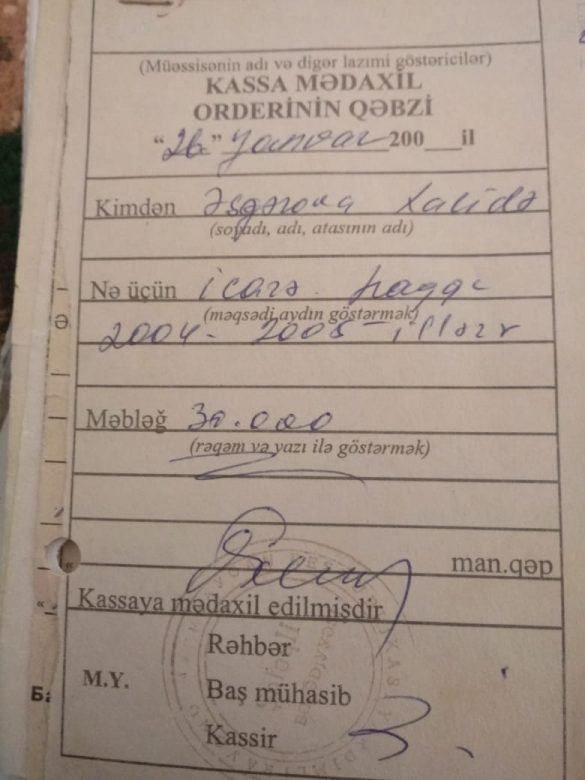 (Müəssisənin adı və digər lazımi göstəricilər)
KASSA MƏDAXİL
ORDERİNİN QƏBZİ
“26” Yanvar 200___il
Kimdən Əsgərova Xalidə
(soyadı, adı, atasının adı)
Nə üçün icarə haqqı
(məqsədi aydın göstərmək)
2004-2005-illər
Məbləğ 30.000
(rəqəm və yazı ilə göstərmək)
man.qəp
Kassaya mədaxil edilmişdir
Rəhbər
M.Y.
Baş mühasib
Kassir